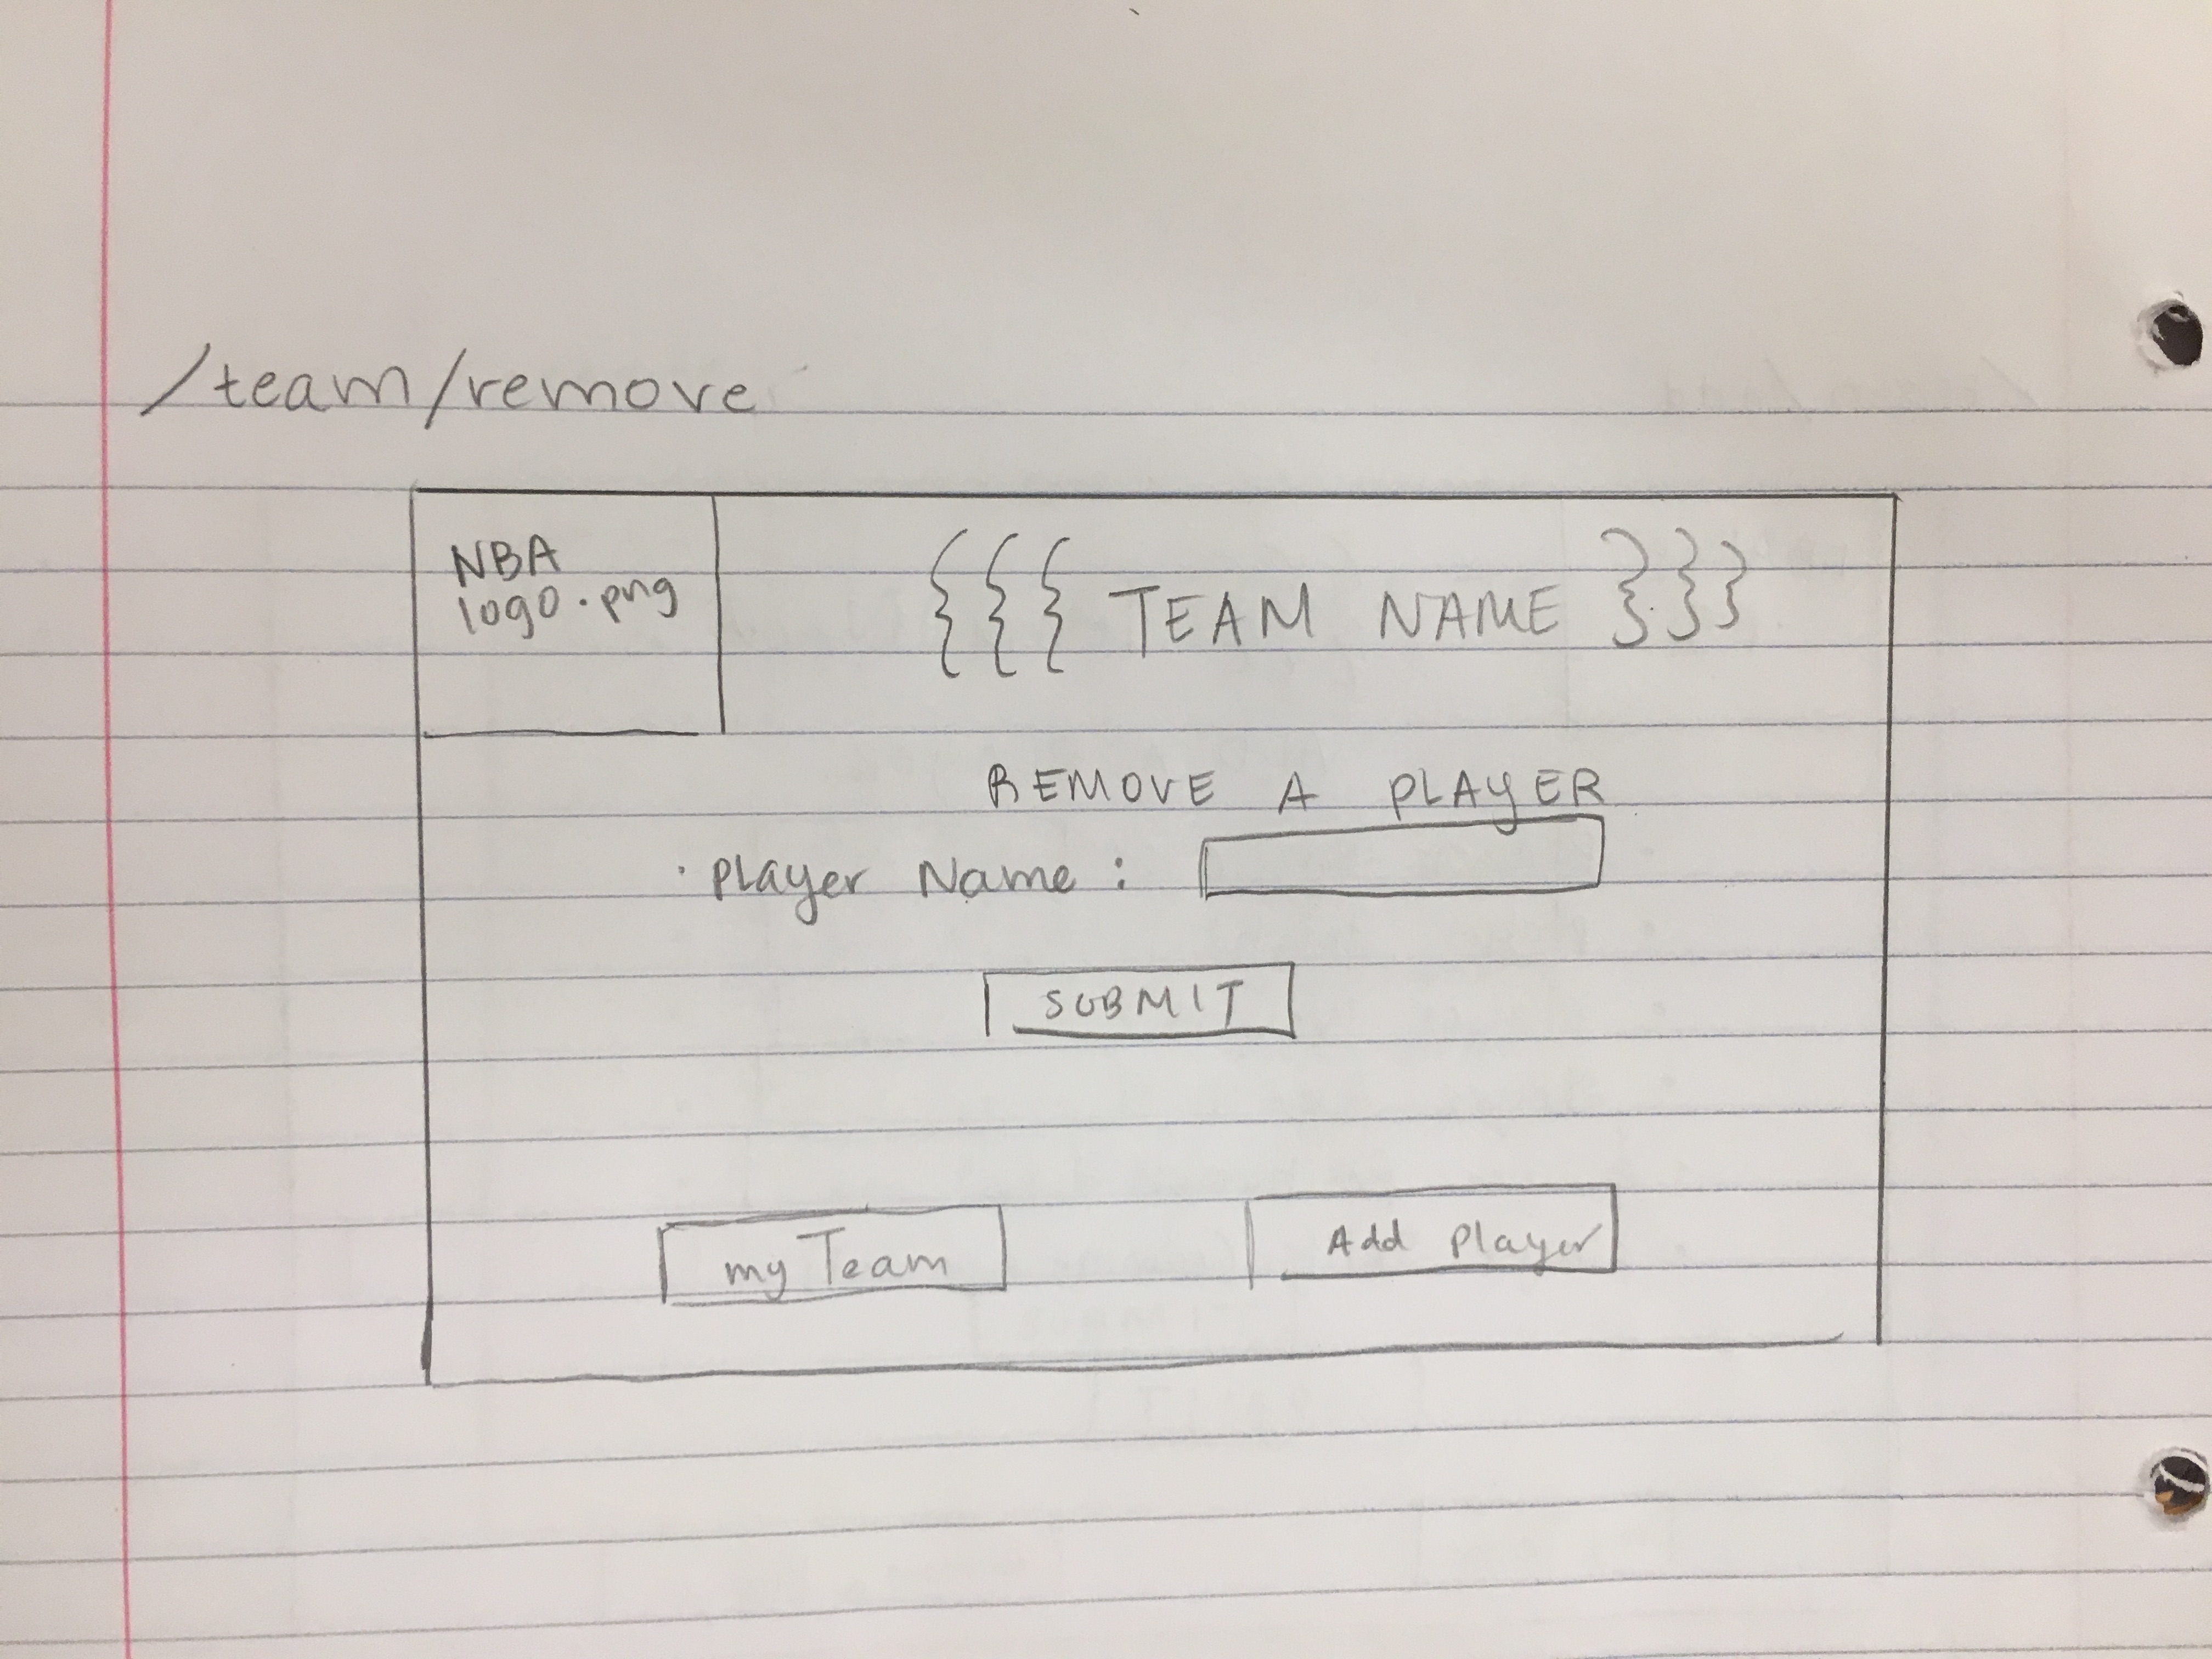 /team/remove
NBA
logo.png
{{{ TEAM NAME }}}
REMOVE A PLAYER
· Player Name :
SUBMIT
my Team
Add Player